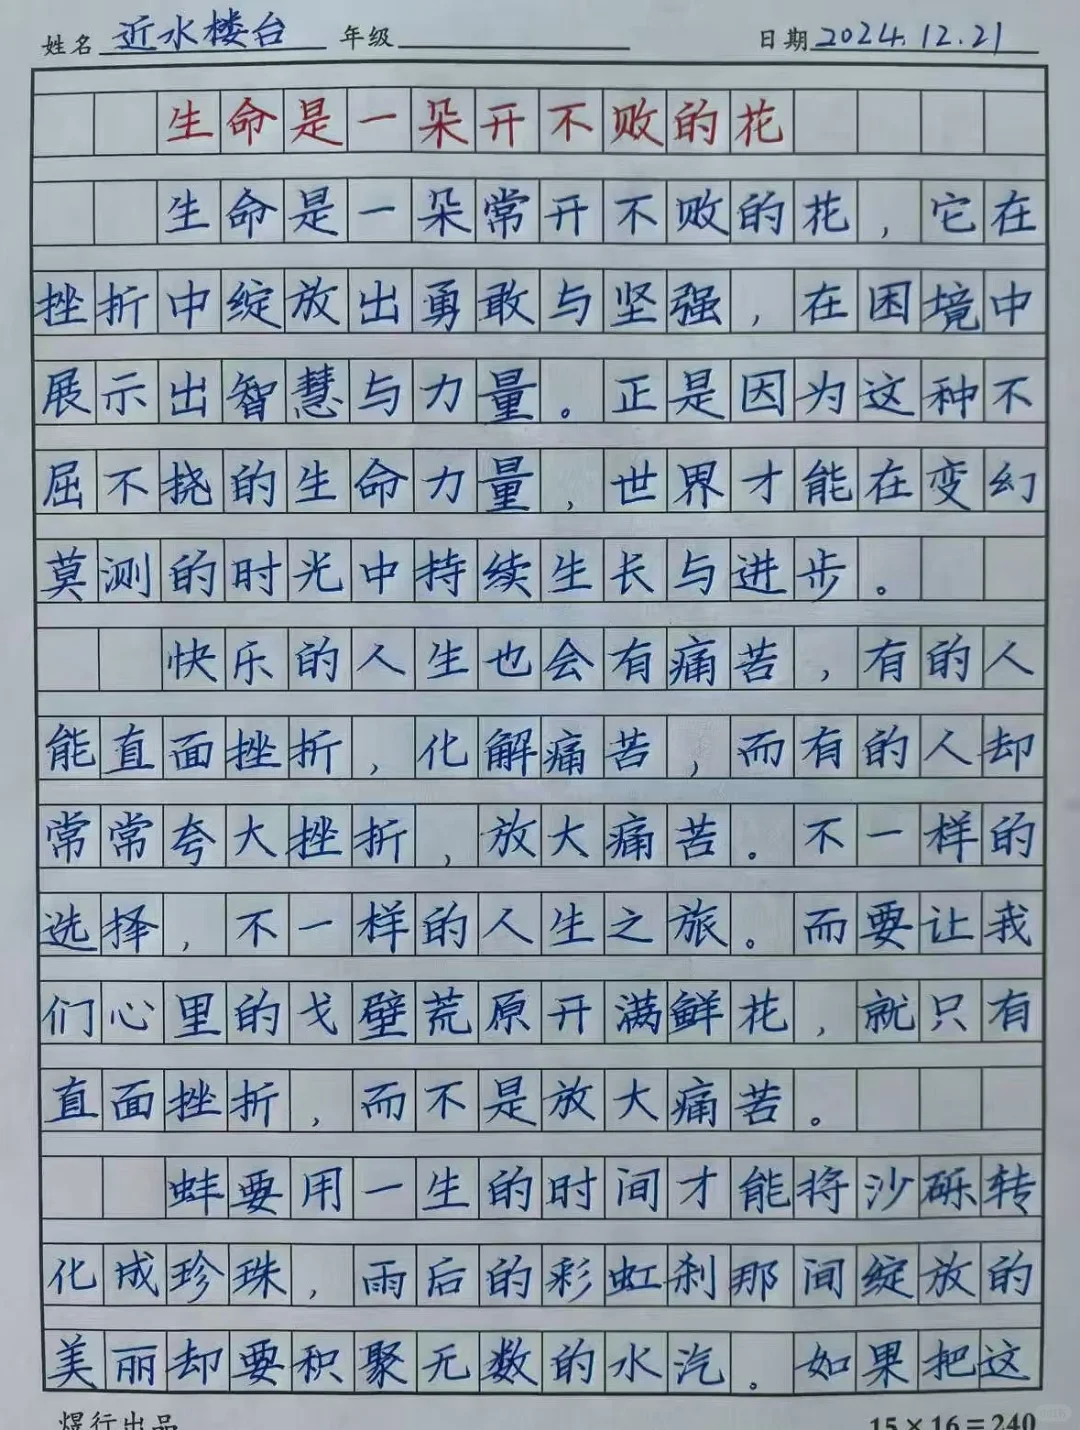 姓名 近水楼台 年级 日期 2024.12.21
生命是一朵开不败的花
生命是一朵常开不败的花，它在
挫折中绽放出勇敢与坚强，在困境中
展示出智慧与力量。正是因为这种不
屈不挠的生命力量，世界才能在变幻
莫测的时光中持续生长与进步。
快乐的人生也会有痛苦，有的人
能直面挫折，化解痛苦，而有的人却
常常夸大挫折，放大痛苦。不一样的
选择，不一样的人生之旅。而要让我
们心里的戈壁荒原开满鲜花，就只有
直面挫折，而不是放大痛苦。
蚌要用一生的时间才能将沙砾转
化成珍珠，雨后的彩虹刹那间绽放的
美丽却要积聚无数的水汽。如果把这
煜行出品 15×16=240